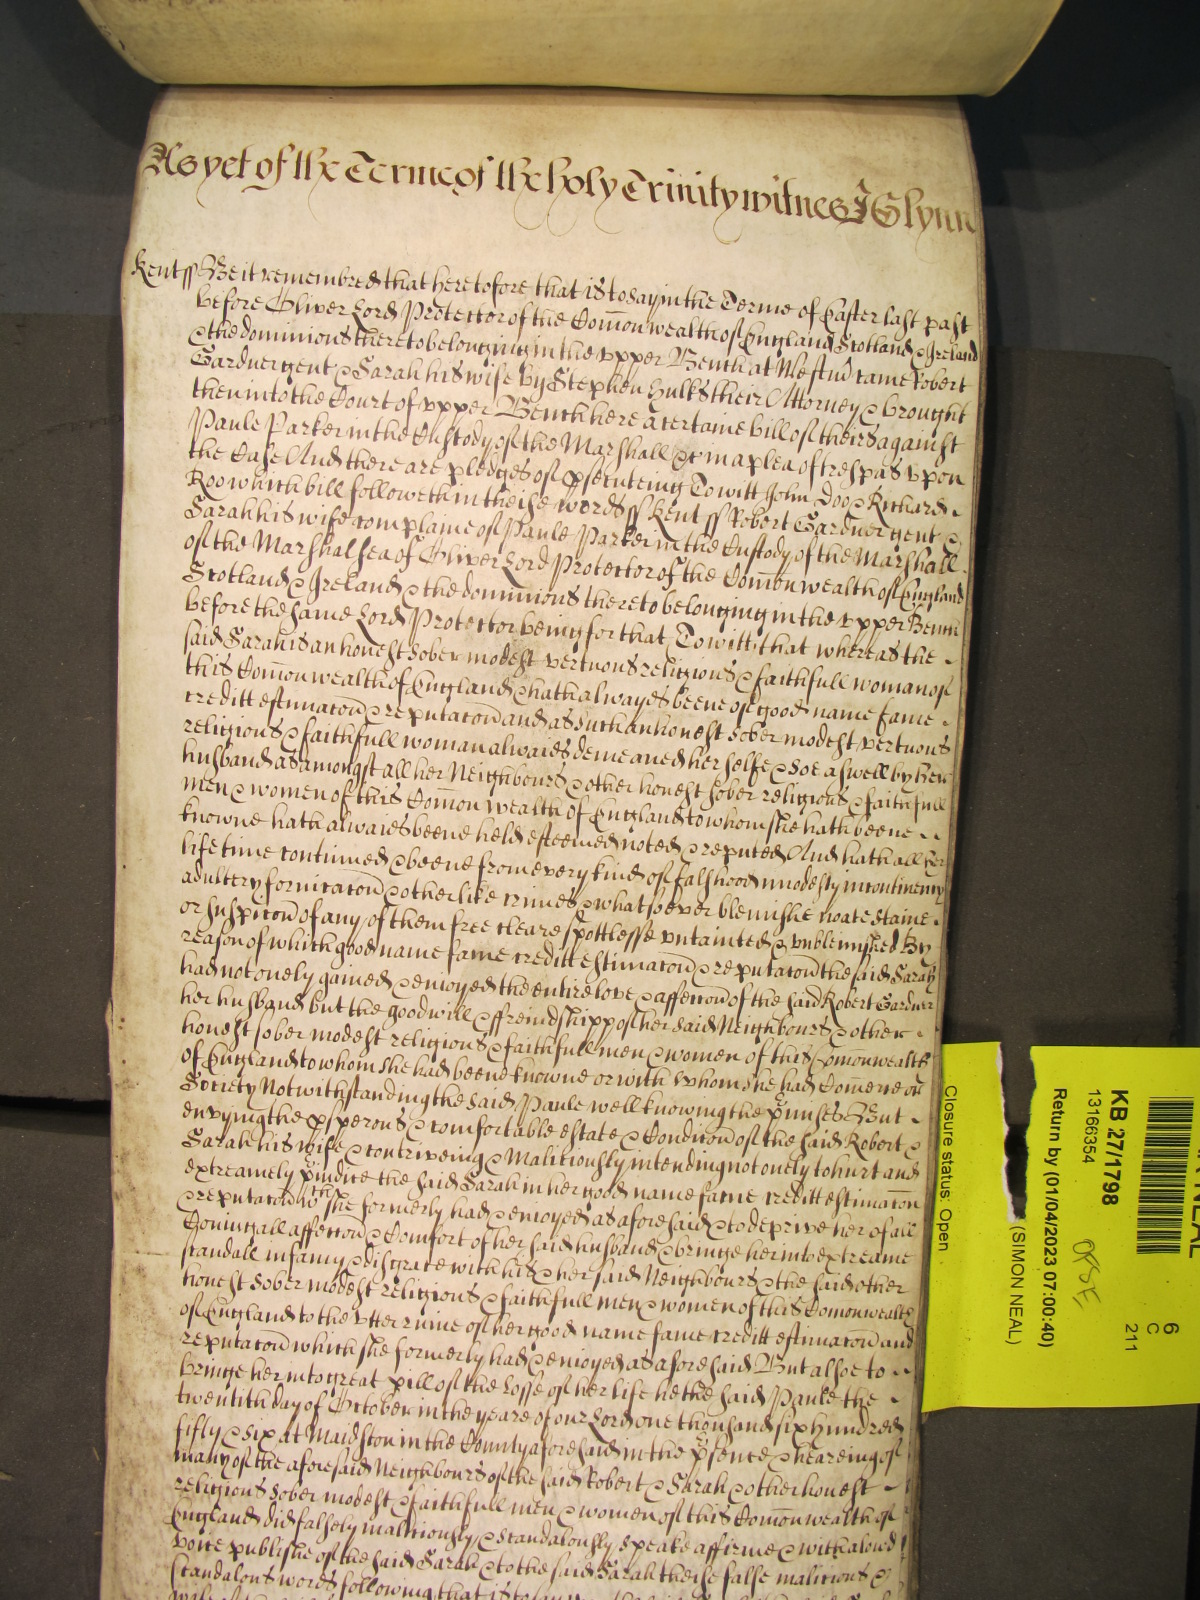 As yet of the Terme of the holy Trinity witnes J Glynn
Kent ss Be it remembred that heretofore that is to say in the Terme of Easter last past
before Oliver Lord Protector of the Com̄onwealth of England Scotland & Ireland
& the dominions thereto belonging in the vpper Bench at Westm̄ came Robert
Gardner gent & Sarah his wife by Stephen Hulks their Attorney & brought
then into the Court of vpper Bench here a certaine bill of theirs against
Paule Parker in the Custody of the Marshall &c in a plea of trespas vpon
the Case And there are pledges of p̱secuteing To witt John Doo & Richard
Roo which bill followeth in theise words ss Kent ss Robert Gardner gent &
Sarah his wife complaine of Paule Parker in the Custody of the Marshall
of the Marshalsea of Oliver Lord Protector of the Com̄onwealth of England
Scotland & Ireland & the dominions thereto belonging in the vpper Bench
before the same Lord Protector being for that To witt that whereas the
said Sarah is an honest sober modest vertuous religious & faithfull woman of
this Com̄onwealth of England & hath alwayes beene of good name fame
creditt estimac̄on & reputac̄on and as such an honest sober modest vertuous
religious & faithfull woman alwaies demeaned her selfe & soe aswell by her
husband as amongst all her Neighbours & other honest sober religious & faithfull
men & women of this Com̄onwealth of England to whom she hath beene
knowne hath alwaies beene held esteemed noted & reputed And hath all her
life time continued & beene from every kind of falshood imodesty incontinency
adultery fornicac̄on & other like crimes & whatsoever blemishe noate staine
or suspic̄on of any of them free cleare spottlesse vntainted & vnblemished By
reason of which good name fame creditt estimac̄on & reputac̄on the said Sarah
had not onely gained & enioyed the entire love & affecc̄on of the said Robert Gardner
her husband but the goodwill & ffreindshipp of her said Neighbours & other
honest sober modest religious & faithfull men & women of this Com̄onwealth
of England to whom she had beene knowne or with whom she had Comerce or
Society Notwithstanding the said Paule well knowing the p̱mises But
envying the p̱sperous & comfortable estate & Condic̄on of the said Robert &
Sarah his wife & contriveing & Malitiously intending not onely to hurt and
extreamely p̱iudice the said Sarah in her good name fame creditt estimac̄on
& reputac̄on wch she formerly had & enioyed as aforesaid & to deprive her of all
Coniugall affecc̄on & Comfort of her said husband & bringe her into extreame
scandall infamy & disgrace with his & her said Neighbours & the said other
honest sober modest religious & faithfull men & women of this Comonwealth
of England to the vtter ruine of her good name fame creditt estimac̄on and
reputac̄on which she formerly had & enioyed as aforesaid But alsoe to
bringe her into great p̱ill of the losse of her life he the said Paule the
twentith day of October in the yeare of our Lord one thousand six hundred
fifty & six at Maidston in the County aforesaid in the p̱sence & heareing of
many of the aforesaid Neighbours of the said Robert & Sarah & other honest
religious sober modest & faithfull men & women of this Com̄onwealth of
England did falsely malitiously & scandalously speake affirme & with a lowd
voice publishe of the said Sarah & to the said Sarah theise false malitious &
scandalous words following that is to say
KB 27/1798
13166354
Return by (01/04/2023 07:00:40)
(SIMON NEAL)
Closure status: Open
6
C
211